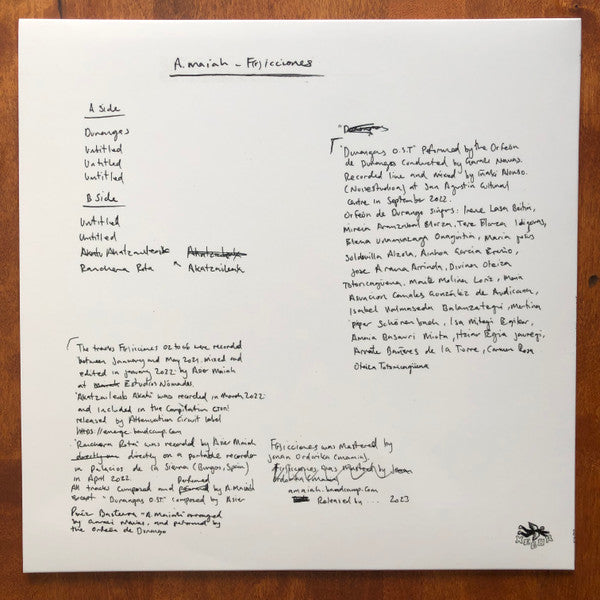 A. maiah - F(r)icciones
A Side
Durangas
Untitled
Untitled
Untitled
B Side
Untitled
Untitled
Akatzailenak
Ranchera Rota
Akatzailenak
"Durangas O.S.T" Peformed by the Orfeón
de Durango conducted by
Recorded live and mixed by Iñaki Alonso.
(Noisestudioa) at San Agustin Cultural
Centre in September 2022.
Orfeón de Durango singers: Irene Lasa
Mireia Aranzabal Elorza, Tere Elorza Idigoras,
Elena Unamuzaga Onaguitia, Maria
Soldevilla Alzola, Ainhoa Garcia
Jose Arana Arrinda, Divina Oteiza
Totoricagüena, Maite Molina Loriz, Maria
Asuncion Canales González de Audicana,
Isabel Valmaseda Balanzategui, Martina
piper Schönenbach, Isa Mitegi Egibar,
Basauri, Itziar Egia Jauregi,
Arrate Bañeres de la Torre, Carmen Rosa
Oteiza Totoricagüena
The tracks F(r)icciones 02 to 06 were recorded
between January and May 2021. mixed and
edited in January 2022 by Asier Maiah
at Estudios Nómadas.
"Akatzailenak Akats" was recorded in March 2022
and included in the compilation
released by Attenuation Circuit label
https://emerge.bandcamp.com
"Ranchera Rota" was recorded by Asier Maiah
directly on a portable recorder
in Palacios de la Sierra (Burgos, Spain)
in April 2022.
All tracks composed and Performed by A. Maiah
Except "Durangas O.S.T" composed by Asier
Ruiz Basterra "A Maiah" arranged
by and performed by
the Orfeón de Durango
F(r)icciones was Mastered by
Jonan Ordorika (Mamia).
amaiah.bandcamp.com
Released by ... 2023